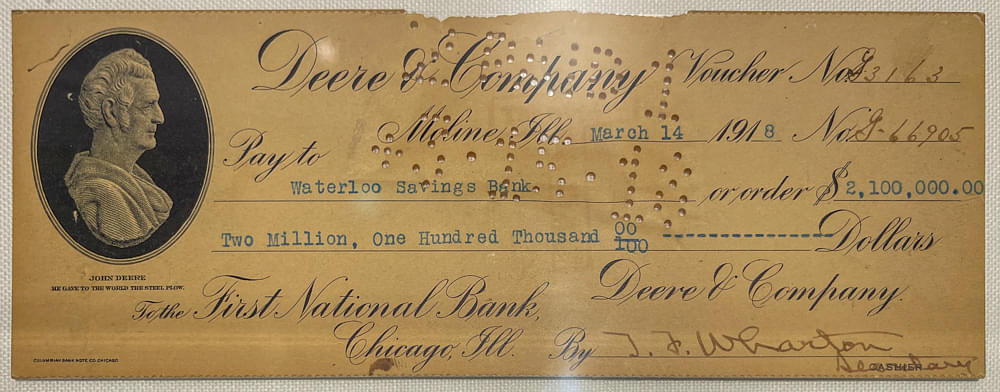 Deere & Company Voucher No. G3163
Moline, Ill. March 14 1918 No. G-66905
Pay to
Waterloo Savings Bank or order $ 2,100,000.00
Two Million, One Hundred Thousand 00/100 --------------- Dollars
JOHN DEERE
HE GAVE TO THE WORLD THE STEEL PLOW.
To the First National Bank,
Chicago, Ill.
Deere & Company.
By T. F. Wharton
CASHIER
Secretary
COLUMBIAN BANK NOTE CO. CHICAGO